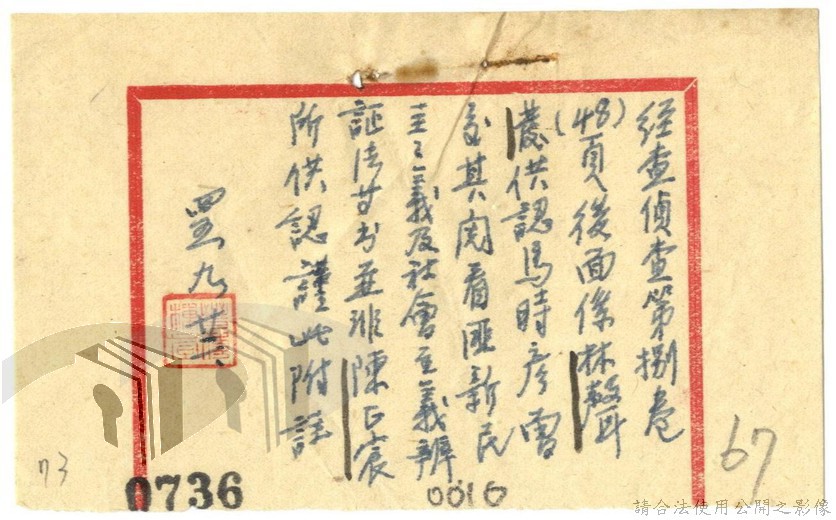 經查偵查第捌卷
(48)頁後面係林聲
發供認馬時彥曾
交其閱看匪新民
主主義及社會主義辨
証法廿書並非陳正宸
所供認謹此附註
四五九廿六
67
73
0736
0016
請合法使用公開之影像